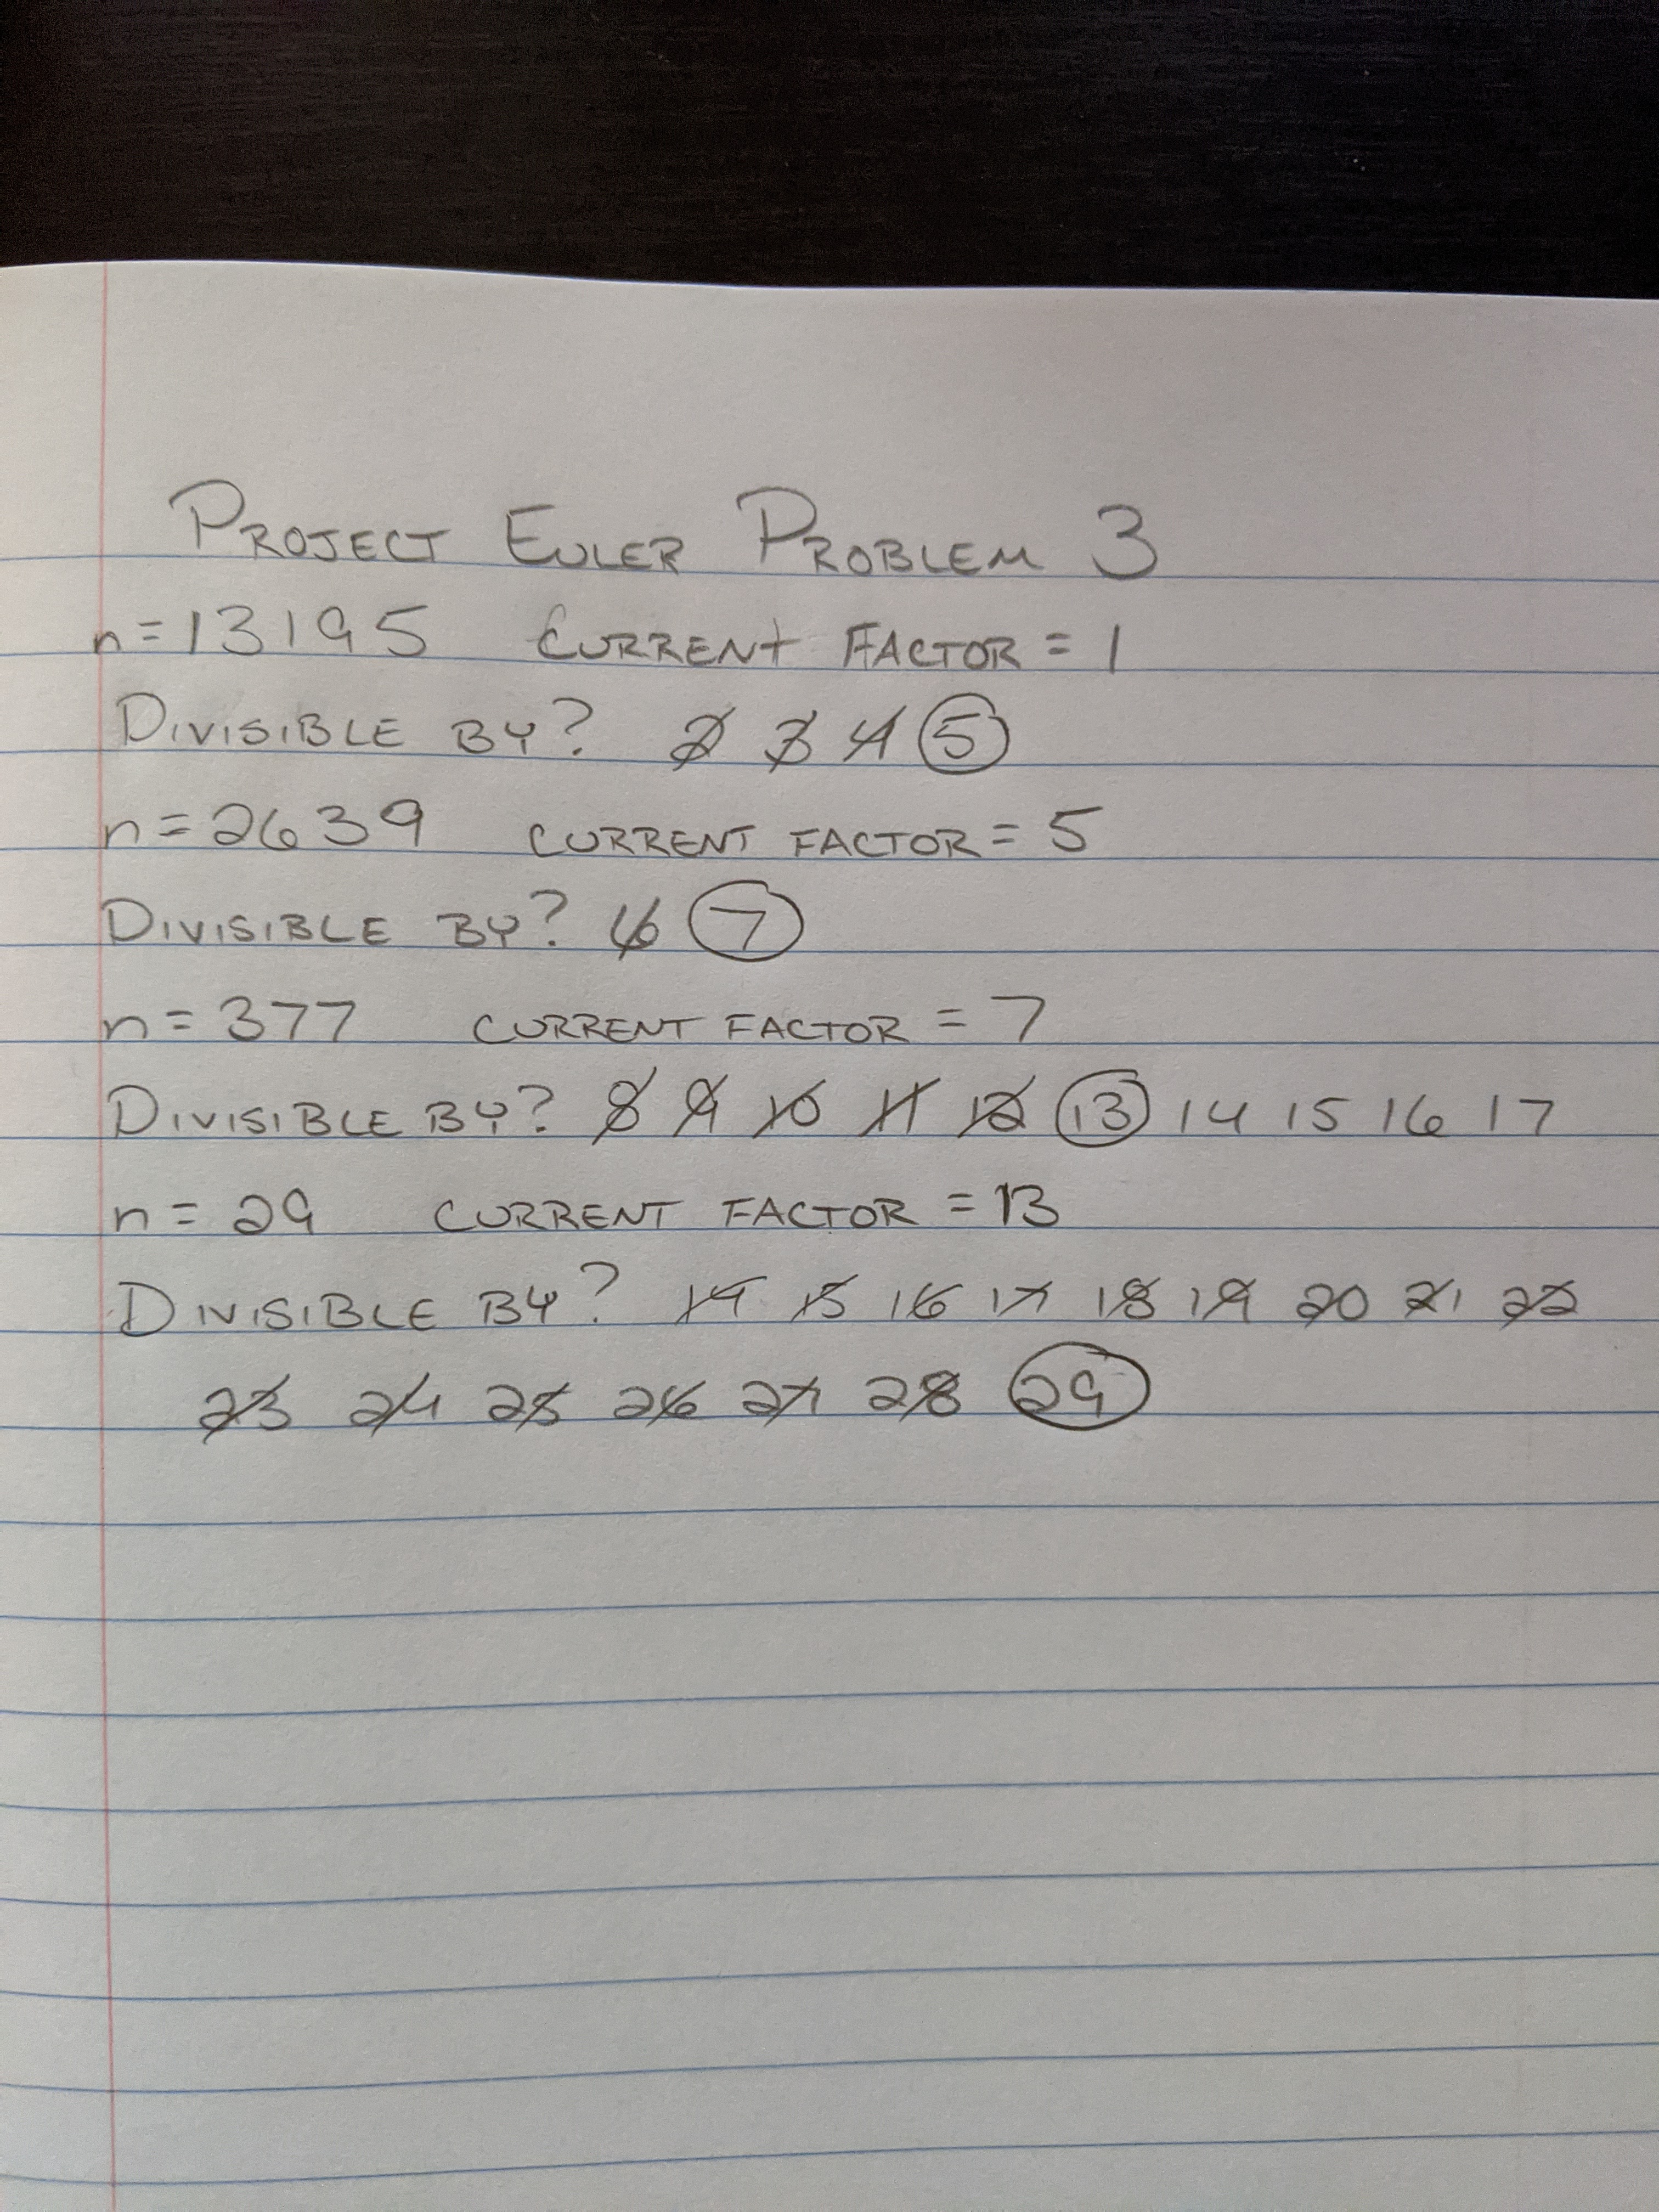 PROJECT EULER PROBLEM 3
n=13195 CURRENT FACTOR = 1
DIVISIBLE BY? 2 3 4 5
n=2639 CURRENT FACTOR = 5
DIVISIBLE BY? 6 7
n=377 CURRENT FACTOR = 7
DIVISIBLE BY? 8 9 10 11 12 13 14 15 16 17
n=29 CURRENT FACTOR = 13
DIVISIBLE BY? 14 15 16 17 18 19 20 21 22
23 24 25 26 27 28 29